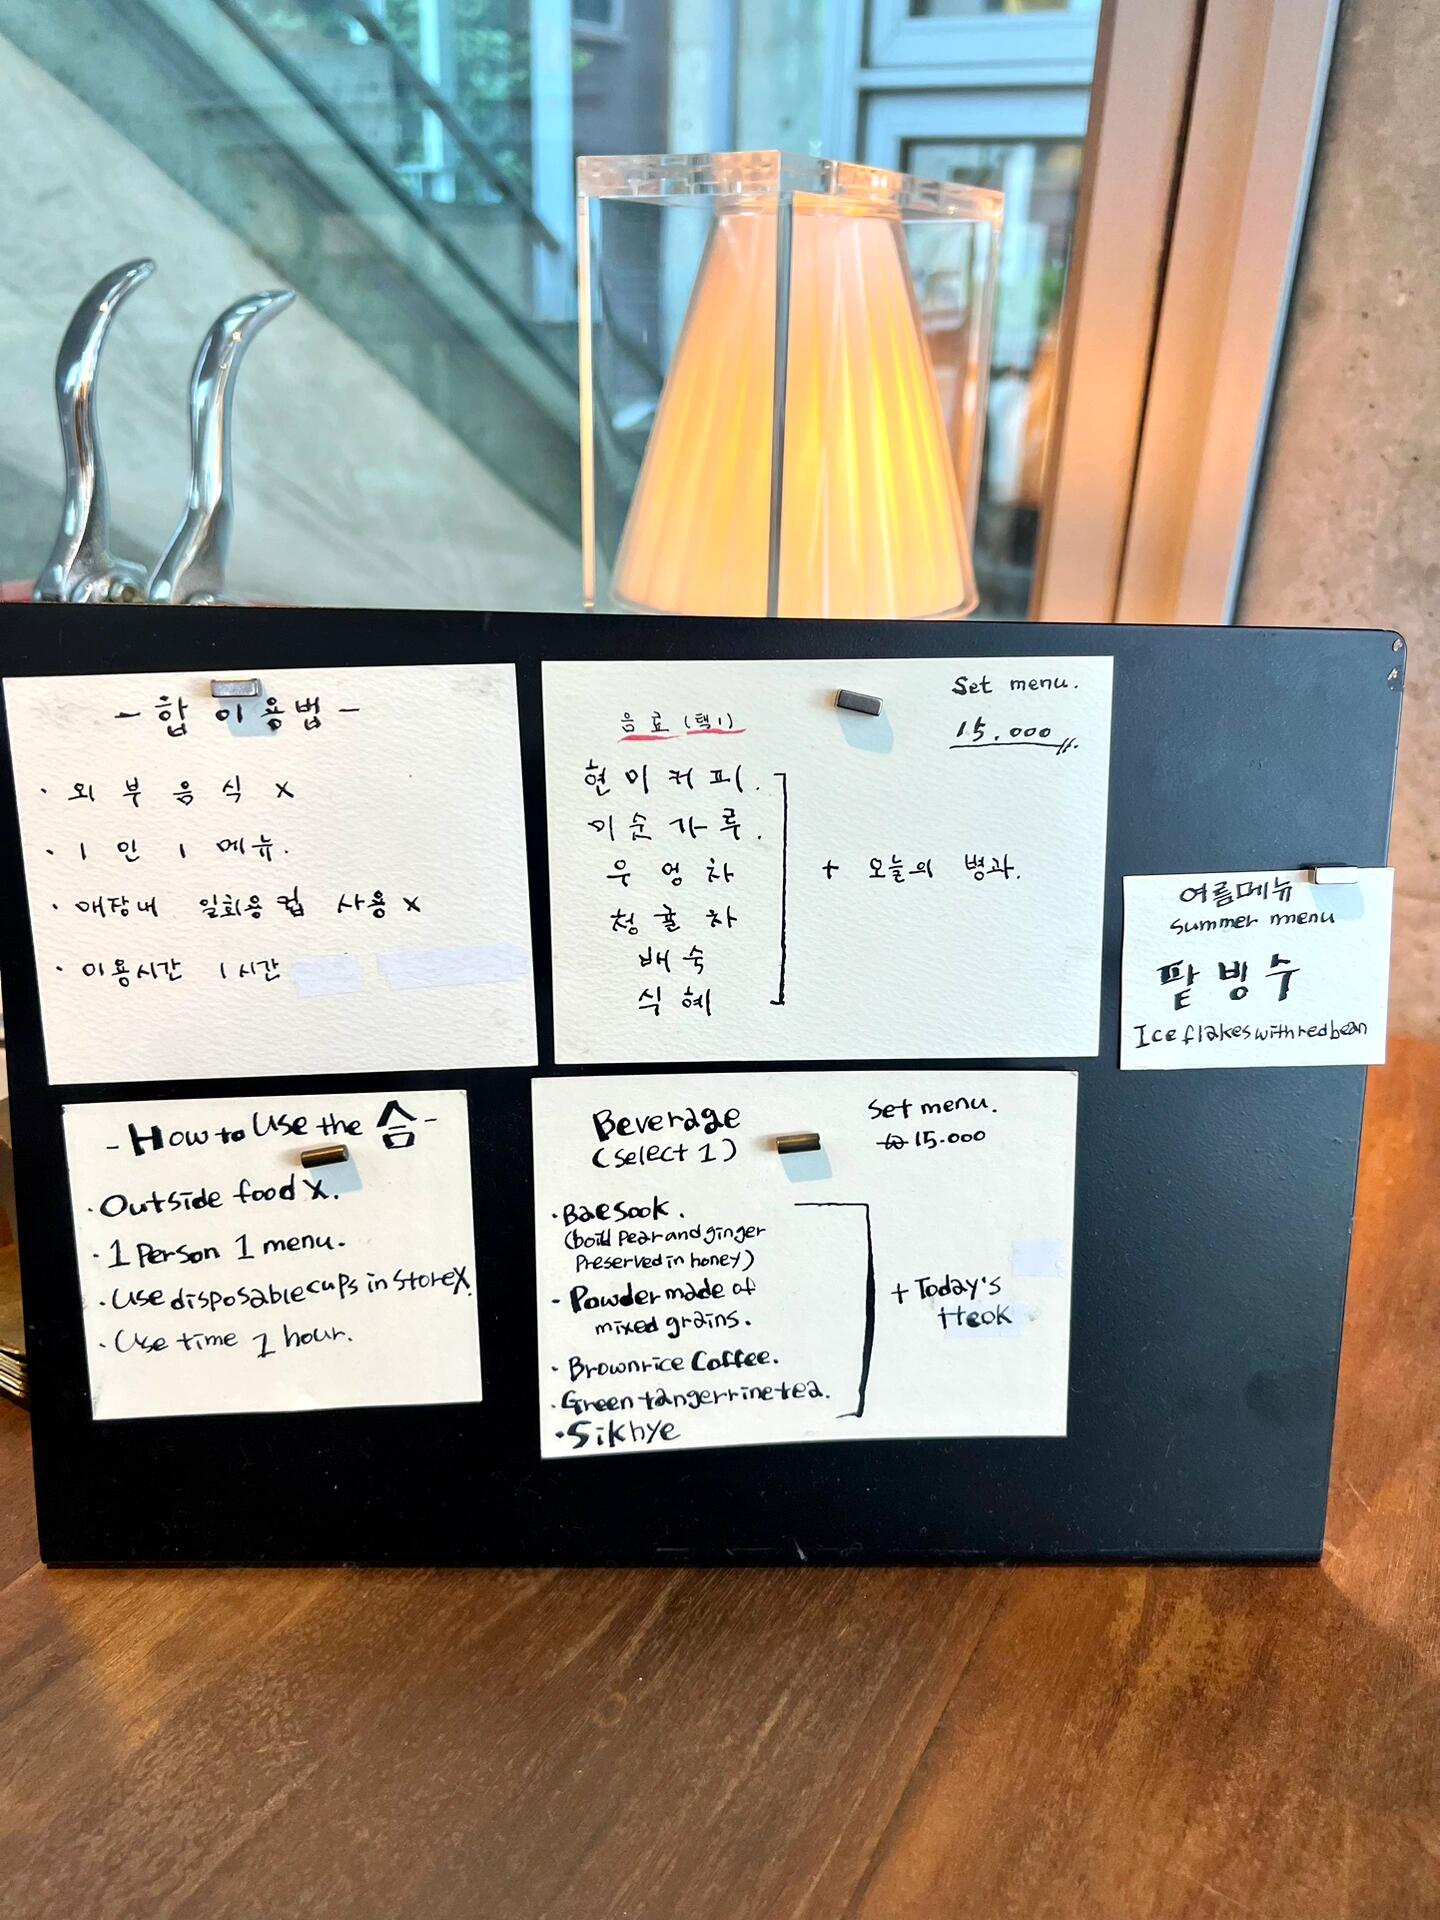 - 합 이용법 -
· 외부음식 x
· 1인 1메뉴.
· 매장내 일회용컵 사용 x
· 이용시간 1시간
Set menu.
15.000
음료 (택1)
현미커피.
미순가루.
우엉차
청귤차
배숙
식혜
+ 오늘의 병과.
여름메뉴
summer menu
팥빙수
Ice flakes with red bean
- How to Use the 合 -
· Outside food X.
· 1 Person 1 menu.
· Use disposable cups in store X.
· Use time 1 hour.
Beverage
(select 1)
Set menu.
₩ 15.000
· Baesook.
(boild Pear and ginger
Preserved in honey)
· Powder made of
mixed grains.
· Brownrice Coffee.
· Green tangerrine tea.
· Sikhye
+ Today's
tteok